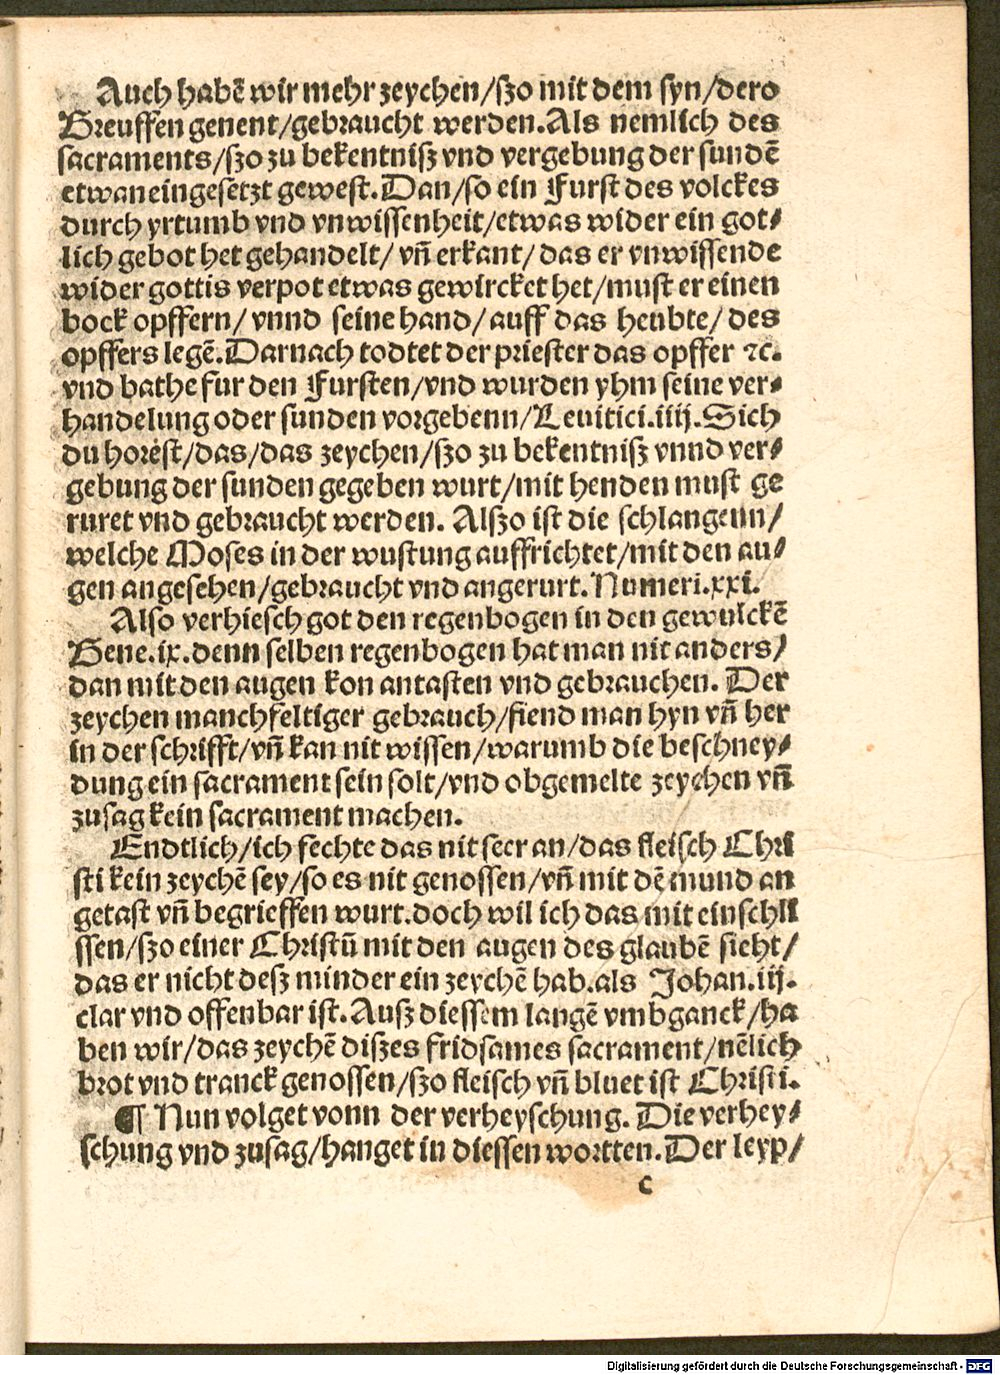 Auch habē wir mehr zeychen/szo mit dem syn/dero
Greuffen genent/gebraucht werden.Als nemlich des
sacraments/szo zu bekentnisz vnd vergebung der sundē
etwan eingesetzt gewest.Dan/so ein Furst des volckes
durch yrtumb vnd vnwissenheit/etwas wider ein got/
lich gebot het gehandelt/ vn̄ erkant/ das er vnwissende
wider gottis verpot etwas gewircket het/must er einen
bock opffern/ vnnd seine hand/ auff das heubte/ des
opffers legē.Darnach todtet der priester das opffer ꝛc.
vnd bathe fur den Fursten/vnd wurden yhm seine ver/
handelung oder sunden vorgebenn/Leuitici.iiij.Sich
du horest/das/das zeychen/szo zu bekentnisz vnnd ver/
gebung der sunden gegeben wurt/mit henden must ge
ruret vnd gebraucht werden. Alszo ist die schlangenn/
welche Moses in der wustung auffrichtet/mit den au/
gen angesehen/gebraucht vnd angerurt.Numeri.xxi.
Also verhiesch got den regenbogen in den gewulckē
Gene.ix.denn selben regenbogen hat man nit anders/
dan mit den augen kon antasten vnd gebrauchen. Der
zeychen manchfeltiger gebrauch/fiend man hyn vn̄ her
in der schrifft/vn̄ kan nit wissen/warumb die beschney/
dung ein sacrament sein solt/vnd obgemelte zeychen vn̄
zusag kein sacrament machen.
Endtlich/ich fechte das nit seer an/das fleisch Chri
sti kein zeychē sey/so es nit genossen/vn̄ mit dē mund an
getast vn̄ begrieffen wurt.doch wil ich das mit einschli
ssen/szo einer Christū mit den augen des glaubē sicht/
das er nicht desz minder ein zeychē hab.als Johan.iij.
clar vnd offenbar ist.Ausz diessem langē vmbganck/ha
ben wir/das zeychē diszes fridsames sacrament/nēlich
brot vnd tranck genossen/szo fleisch vn̄ bluet ist Christi.
¶ Nun volget vonn der verheyschung. Die verhey/
schung vnd zusag/hanget in diessen wortten.Der leyp/
c
Digitalisierung gefördert durch die Deutsche Forschungsgemeinschaft - DFG